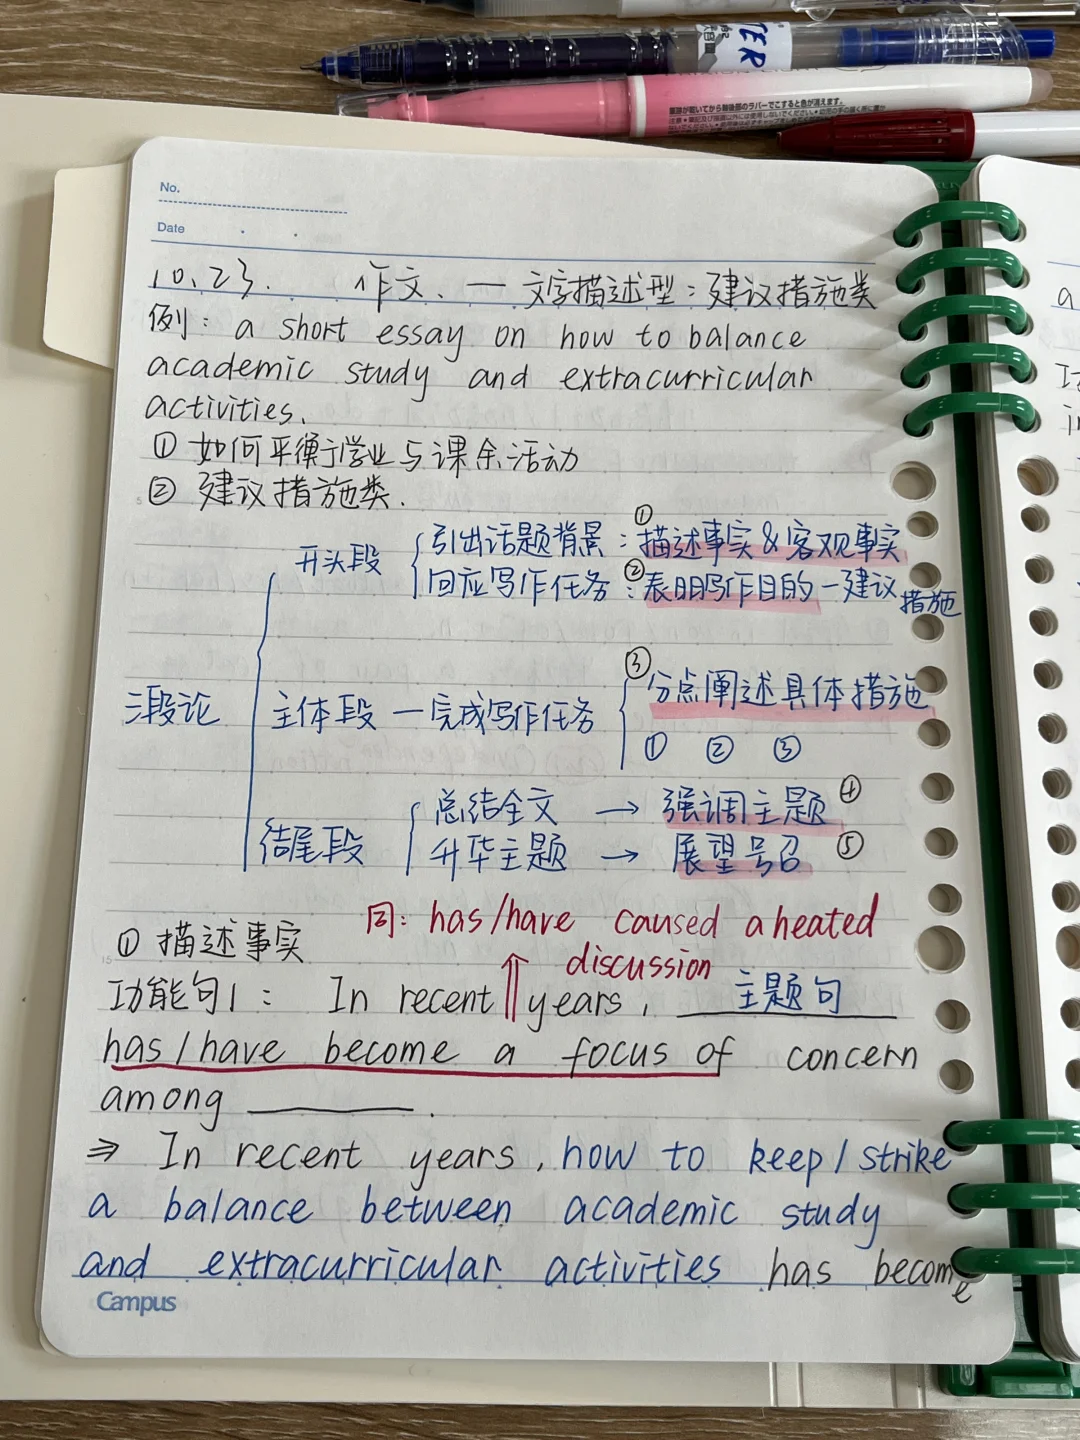 TER
No.
Date
10.23. 作文、— 文字描述型：建议措施类
例：a short essay on how to balance
academic study and extracurricular
activities.
① 如何平衡于学业与课余活动
② 建议措施类.
三段论
开头段
引出话题背景：①描述事实&客观事实
回应写作任务：②表明写作目的—建议措施
主体段—完成写作任务
③分点阐述具体措施
① ② ③
结尾段
总结全文 → 强调主题 ④
升华主题 → 展望号召 ⑤
同：has/have caused a heated
discussion
① 描述事实
功能句1： In recent years, 主题句
has/have become a focus of concern
among ______.
⇒ In recent years, how to keep/strike
a balance between academic study
and extracurricular activities has become
Campus
a